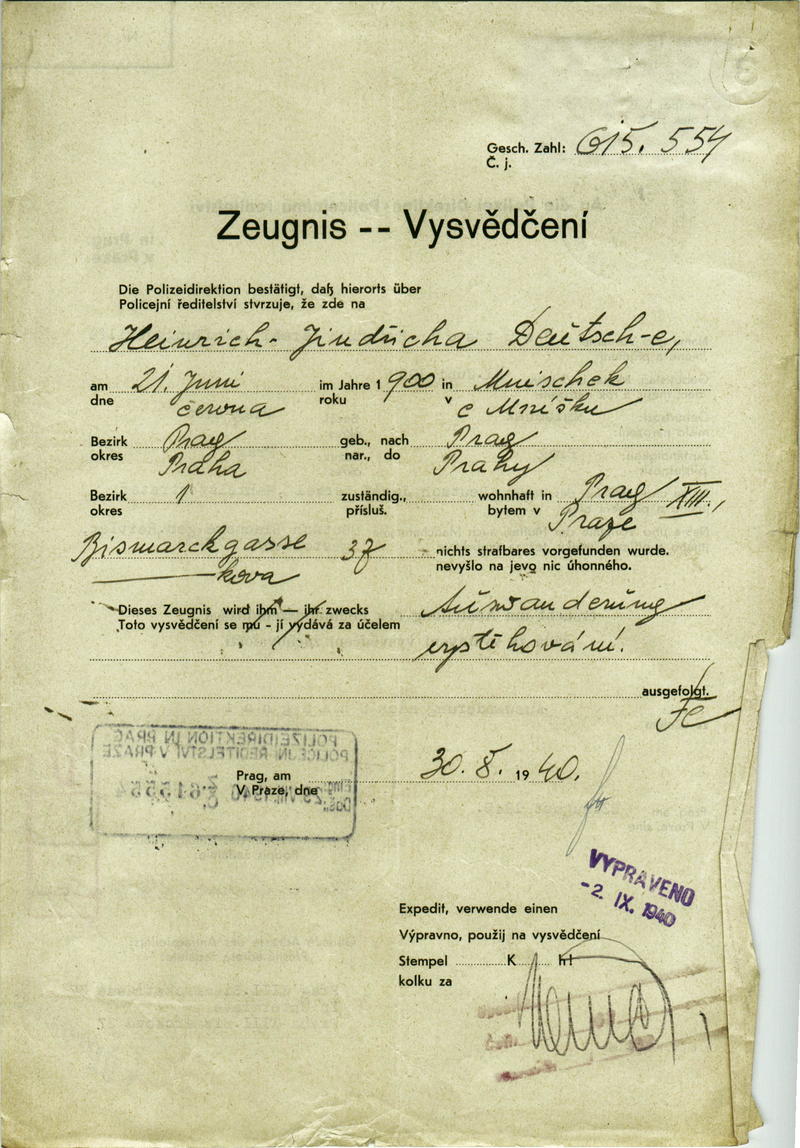 Gesch. Zahl: 615.554
Č. j.
Zeugnis -- Vysvědčení
Die Polizeidirektion bestätigt, daß hierorts über
Policejní ředitelství stvrzuje, že zde na
Heinrich- Jindřicha Deutsch-e,
am 21. Juni im Jahre 1 900 in Mnischek
dne června roku v Mníšku
Bezirk Prag geb., nach Prag
okres Praha nar., do Prahy
Bezirk 1 zuständig., wohnhaft in Prag XIII.,
okres přísluš. bytem v Praze
Bismarckgasse 37 nichts strafbares vorgefunden wurde.
kova nevyšlo na jevo nic úhonného.
Dieses Zeugnis wird ihm — ihr zwecks Auswanderung
Toto vysvědčení se mu - jí vydává za účelem
vystěhování.
ausgefolgt.
POLIZEIDIREKTION IN PRAG
POLICEJNÍ ŘEDITELSTVÍ V PRAZE
Prag, am 30. 8. 19 40.
V Praze, dne
VYPRAVENO
-2. IX. 1940
Expedit, verwende einen
Výpravno, použij na vysvědčení
Stempel K h!
kolku za